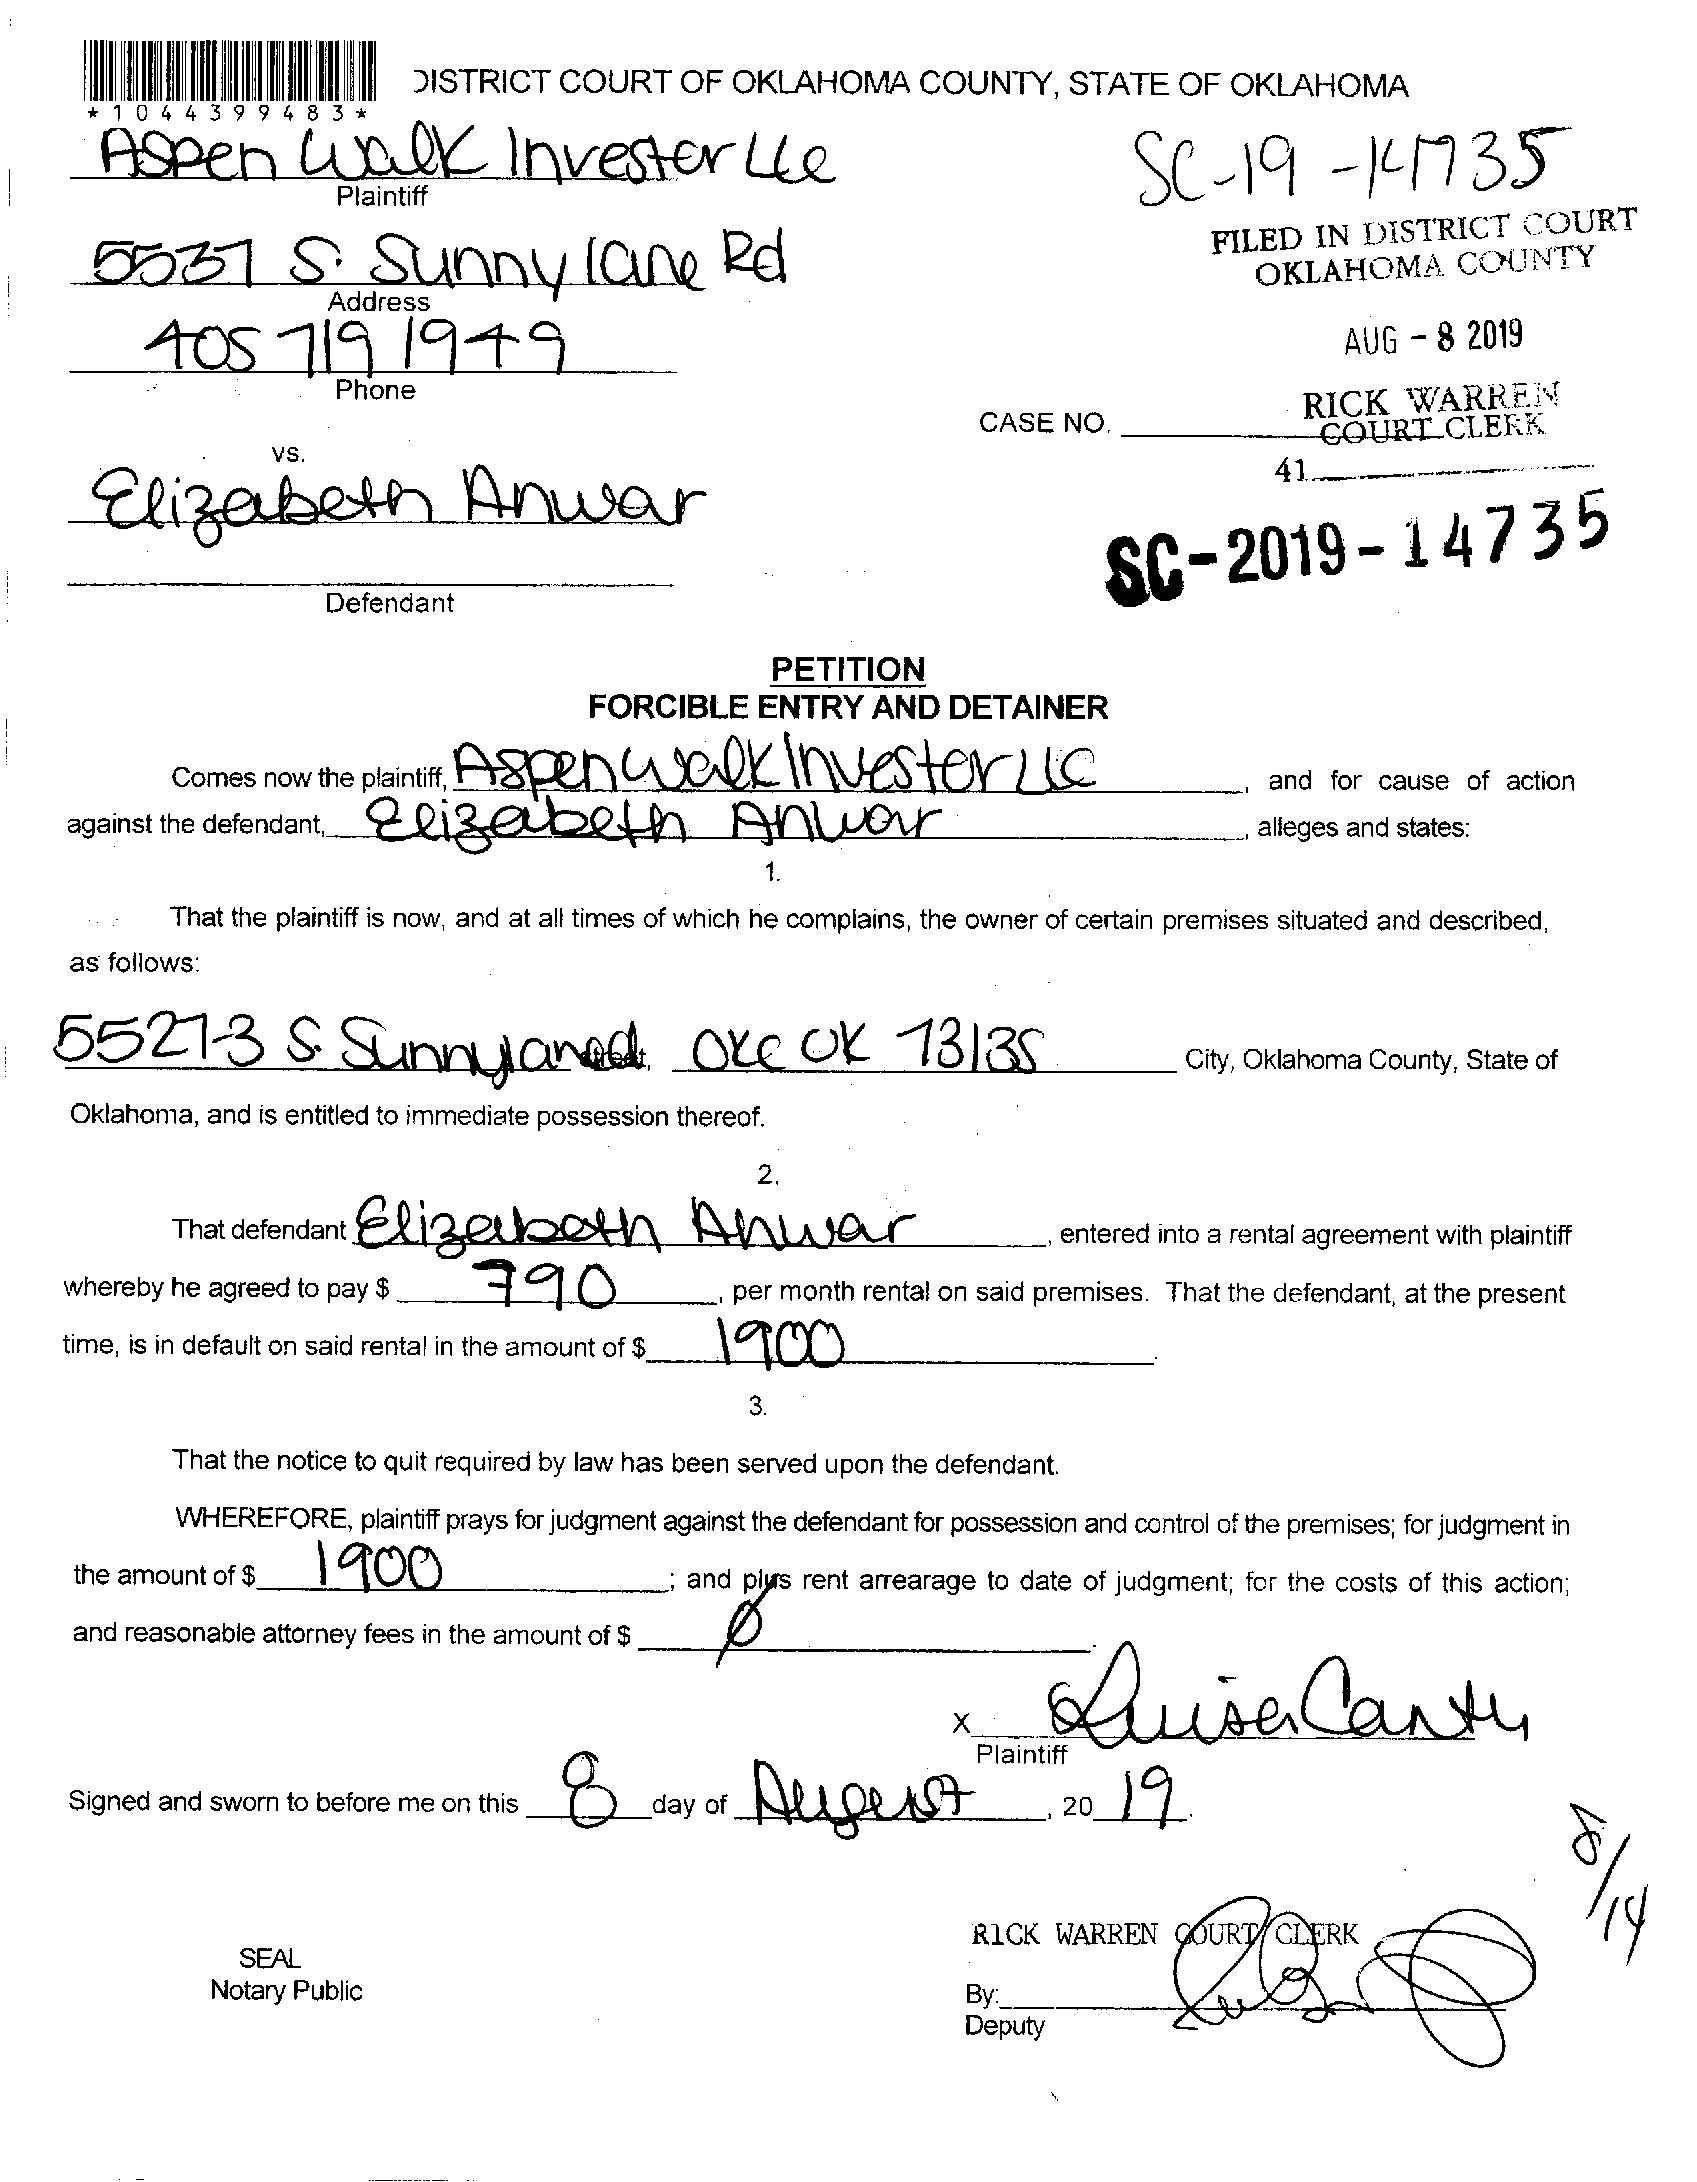 *1044399483*
DISTRICT COURT OF OKLAHOMA COUNTY, STATE OF OKLAHOMA
Aspen Walk Investor LLC
Plaintiff
SC-19-14735
FILED IN DISTRICT COURT
OKLAHOMA COUNTY
5537 S. Sunnylane Rd
Address
AUG - 8 2019
405 719 1949
Phone
RICK WARREN
COURT CLERK
CASE NO.
41
vs.
Elizabeth Anwar
SC-2019-14735
Defendant
PETITION
FORCIBLE ENTRY AND DETAINER
Comes now the plaintiff, Aspen Walk Investor LLC, and for cause of action
against the defendant, Elizabeth Anwar, alleges and states:
1.
That the plaintiff is now, and at all times of which he complains, the owner of certain premises situated and described,
as follows:
5527-3 S. Sunnylane Street, OKC OK 73135 City, Oklahoma County, State of
Oklahoma, and is entitled to immediate possession thereof.
2.
That defendant Elizabeth Anwar, entered into a rental agreement with plaintiff
whereby he agreed to pay $ 790, per month rental on said premises. That the defendant, at the present
time, is in default on said rental in the amount of $ 1900.
3.
That the notice to quit required by law has been served upon the defendant.
WHEREFORE, plaintiff prays for judgment against the defendant for possession and control of the premises; for judgment in
the amount of $ 1900; and plus rent arrearage to date of judgment; for the costs of this action;
and reasonable attorney fees in the amount of $ Ø.
x Luisa Cantu
Plaintiff
Signed and sworn to before me on this 8 day of August, 20 19.
8/14
RICK WARREN COURT CLERK
SEAL
Notary Public
By:
Deputy